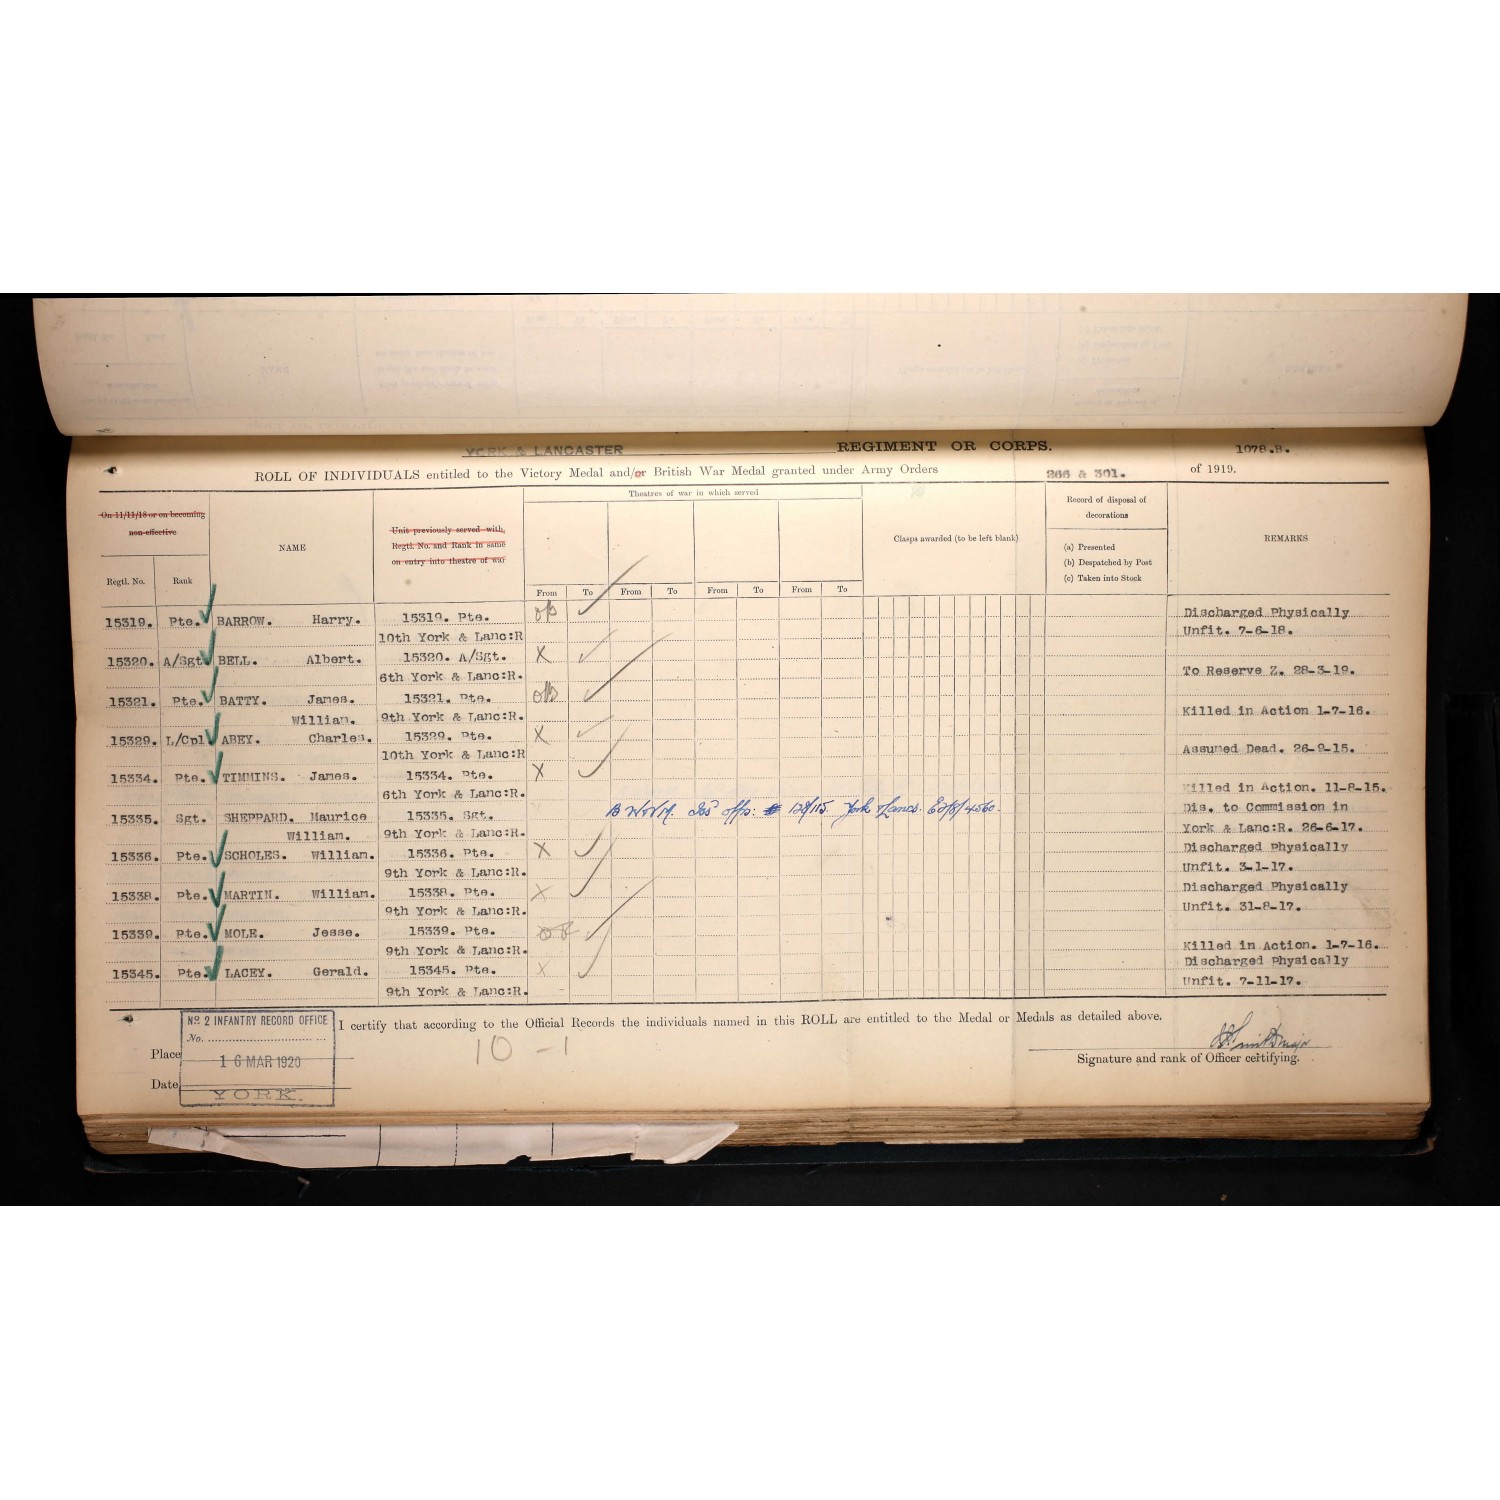 YORK & LANCASTER REGIMENT OR CORPS. 1078.B.
ROLL OF INDIVIDUALS entitled to the Victory Medal and/or British War Medal granted under Army Orders 266 & 301. of 1919.
On 11/11/18 or on becoming non-effective
Regtl. No. Rank
NAME
Unit previously served with, Regtl. No. and Rank in same on entry into theatre of war
Theatres of war in which served
From To From To From To From To
Clasps awarded (to be left blank)
Record of disposal of decorations
(a) Presented
(b) Despatched by Post
(c) Taken into Stock
REMARKS
15319. Pte. BARROW. Harry. 15319. Pte. Discharged Physically
10th York & Lanc:R Unfit. 7-6-18.
15320. A/Sgt. BELL. Albert. 15320. A/Sgt. X
6th York & Lanc:R. To Reserve Z. 28-3-19.
15321. Pte. BATTY. James. 15321. Pte.
William. 9th York & Lanc:R. Killed in Action 1-7-16.
15329. L/Cpl ABEY. Charles. 15329. Pte. X
10th York & Lanc:R Assumed Dead. 26-9-15.
15334. Pte. TIMMINS. James. 15334. Pte. X
6th York & Lanc:R. Killed in Action. 11-8-15.
15335. Sgt. SHEPPARD. Maurice 15335. Sgt. York & Lancs. Dis. to Commission in
William. 9th York & Lanc:R. York & Lanc:R. 26-6-17.
15336. Pte. SCHOLES. William. 15336. Pte. X Discharged Physically
9th York & Lanc:R. Unfit. 3-1-17.
15338. Pte. MARTIN. William. 15338. Pte. X Discharged Physically
9th York & Lanc:R. Unfit. 31-8-17.
15339. Pte. MOLE. Jesse. 15339. Pte.
9th York & Lanc:R. Killed in Action. 1-7-16.
15345. Pte. LACEY. Gerald. 15345. Pte. X Discharged Physically
9th York & Lanc:R. Unfit. 7-11-17.
I certify that according to the Official Records the individuals named in this ROLL are entitled to the Medal or Medals as detailed above.
No. 2 INFANTRY RECORD OFFICE
No.
Place
16 MAR 1920
Date
YORK.
10-1
Signature and rank of Officer certifying.